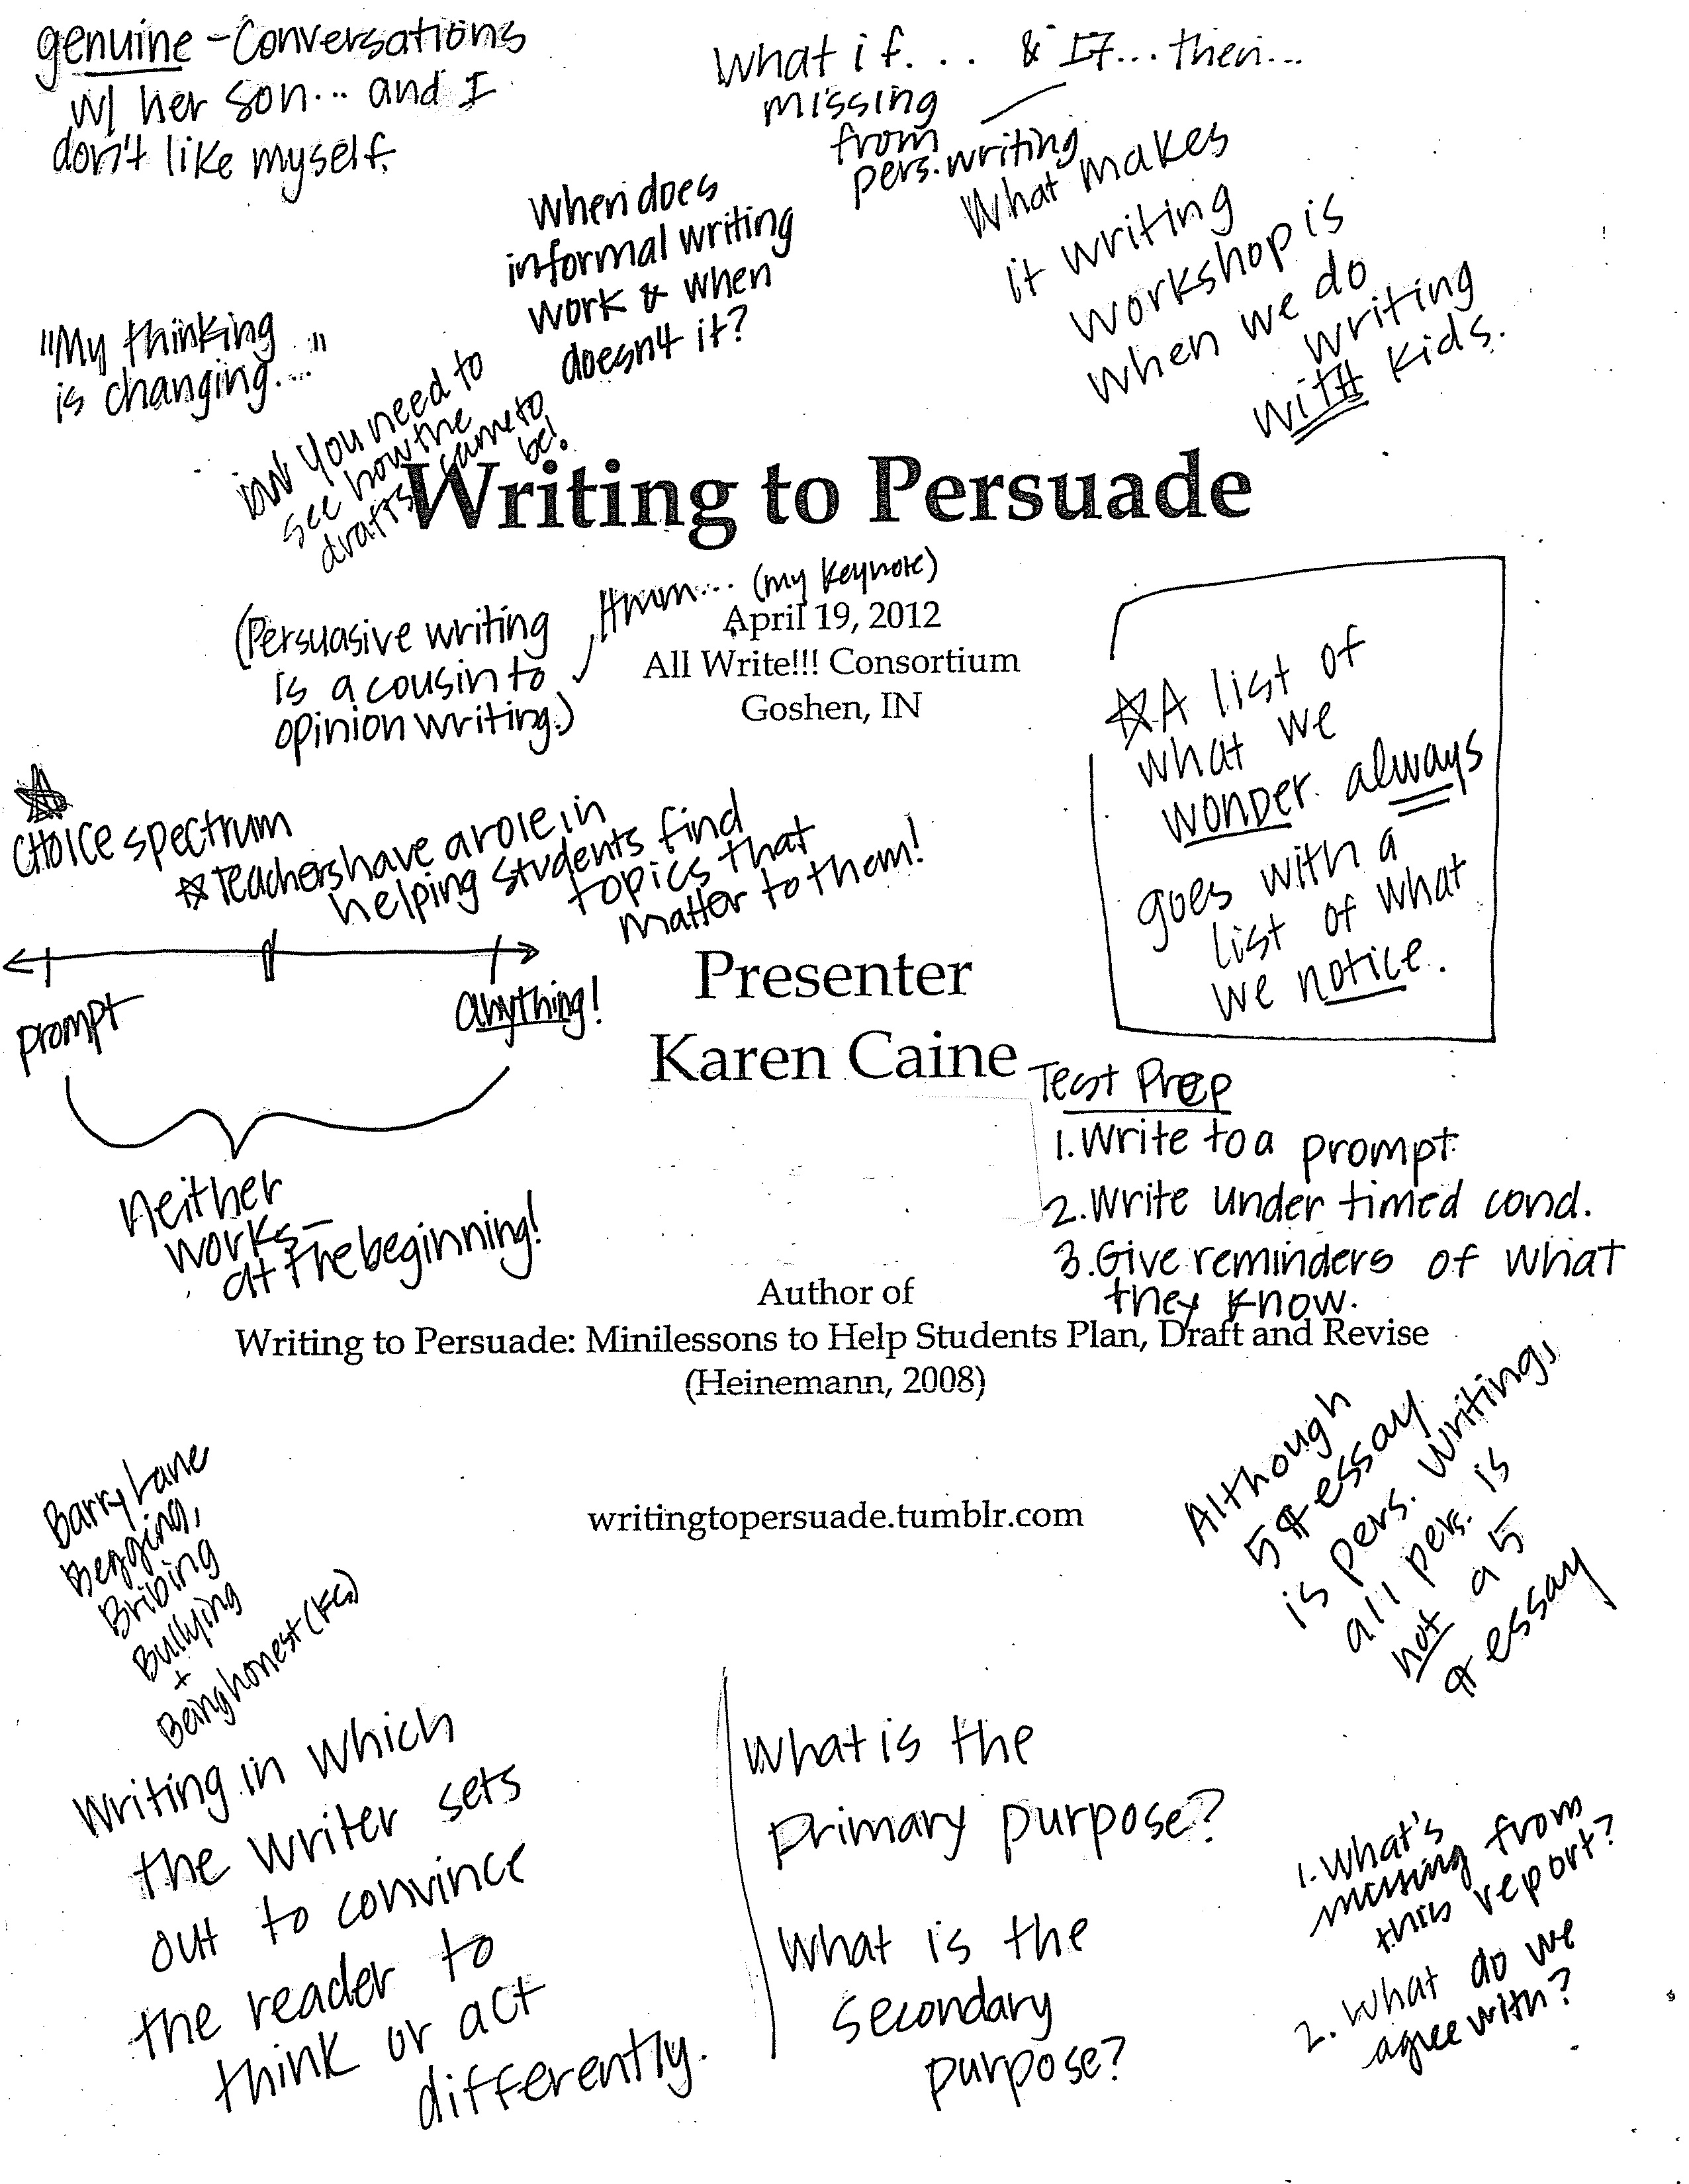 genuine - Conversations
w/ her son... and I
don't like myself.
What if... & If... then...
missing
from
pers. writing
What makes
it writing
workshop is
when we do
writing
with kids.
When does
informal writing
work & when
doesn't it?
"My thinking
is changing..."
you need to
see how the
drafts came to
be!
Writing to Persuade
Hmm... (my keynote)
(Persuasive writing
is a cousin to
opinion writing.)
April 19, 2012
All Write!!! Consortium
Goshen, IN
☆A list of
what we
wonder always
goes with a
list of what
we notice.
☆
CHOICE spectrum
☆ Teachers have a role in
helping students find
topics that
matter to them!
prompt
anything!
neither
works-
at the beginning!
Presenter
Karen Caine
Test Prep
1. Write to a prompt
2. Write under timed cond.
3. Give reminders of what
they know.
Author of
Writing to Persuade: Minilessons to Help Students Plan, Draft and Revise
(Heinemann, 2008)
writingtopersuade.tumblr.com
Although
5 ¶ essay
is pers. writings
all pers. is
not a 5
¶ essay
Barry Lane
Begging,
Bribing
Bullying
+
Being honest (KC)
Writing in which
the writer sets
out to convince
the reader to
think or act
differently.
What is the
Primary purpose?
What is the
Secondary
purpose?
1. What's
missing from
this report?
2. What do we
agree with?